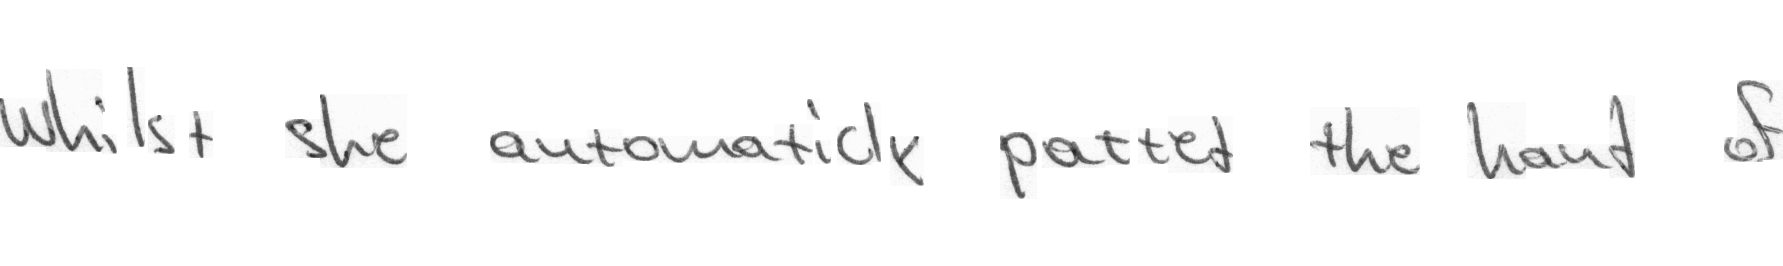 whilst she automaticly patted the hand of